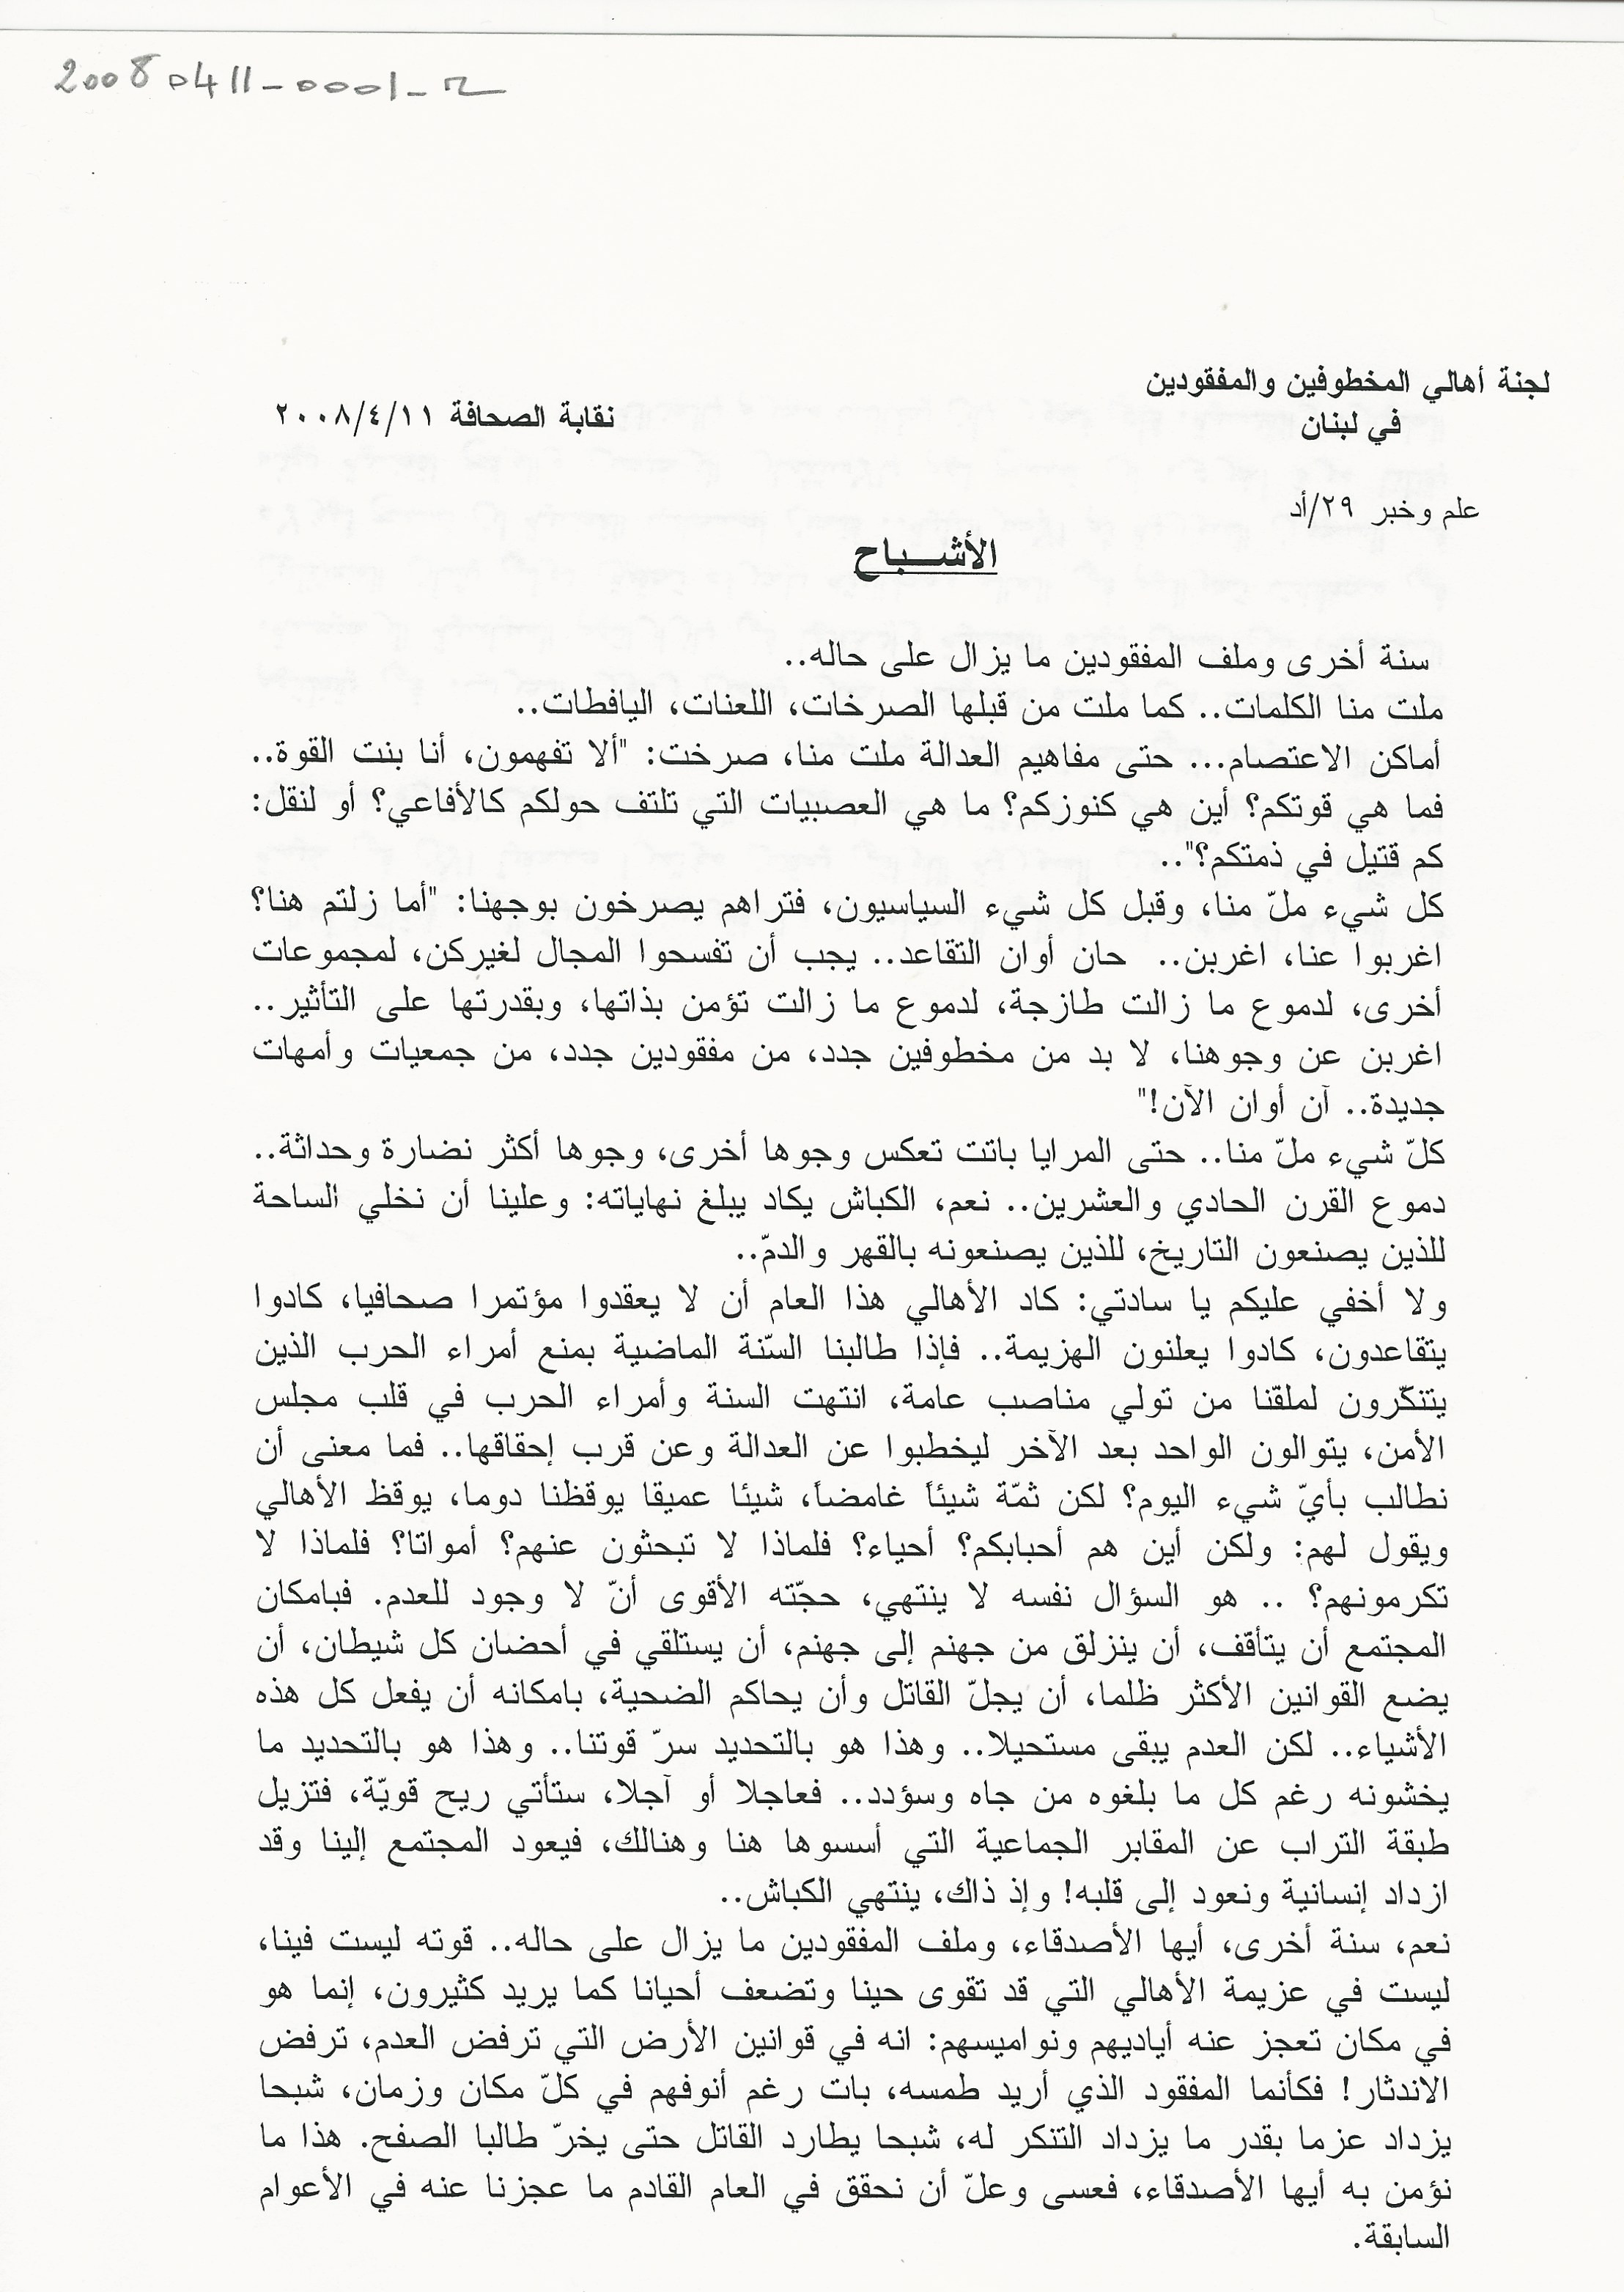 20080411-0001-
لجنة أهالي المخطوفين والمفقودين
نقابة الصحافة ٢٠٠٨/٤/١١
في لبنان
علم وخبر ٢٩/أد
الأشـــباح
سنة أخرى وملف المفقودين ما يزال على حاله..
ملت منا الكلمات.. كما ملت من قبلها الصرخات، اللعنات، اليافطات..
أماكن الاعتصام... حتى مفاهيم العدالة ملت منا، صرخت: "ألا تفهمون، أنا بنت القوة..
فما هي قوتكم؟ أين هي كنوزكم؟ ما هي العصبيات التي تلتف حولكم كالأفاعي؟ أو لنقل:
كم قتيل في ذمتكم؟"..
كل شيء ملّ منا، وقبل كل شيء السياسيون، فتراهم يصرخون بوجهنا: "أما زلتم هنا؟
اغربوا عنا، اغربن.. حان أوان التقاعد.. يجب أن تفسحوا المجال لغيركن، لمجموعات
أخرى، لدموع ما زالت طازجة، لدموع ما زالت تؤمن بذاتها، وبقدرتها على التأثير..
اغربن عن وجوهنا، لا بد من مخطوفين جدد، من مفقودين جدد، من جمعيات وأمهات
جديدة.. آن أوان الآن!"
كلّ شيء ملّ منا.. حتى المرايا باتت تعكس وجوها أخرى، وجوها أكثر نضارة وحداثة..
دموع القرن الحادي والعشرين.. نعم، الكباش يكاد يبلغ نهاياته: وعلينا أن نخلي الساحة
للذين يصنعون التاريخ، للذين يصنعونه بالقهر والدمّ..
ولا أخفي عليكم يا سادتي: كاد الأهالي هذا العام أن لا يعقدوا مؤتمرا صحافيا، كادوا
يتقاعدون، كادوا يعلنون الهزيمة.. فإذا طالبنا السّنة الماضية بمنع أمراء الحرب الذين
يتنكّرون لملفّنا من تولي مناصب عامة، انتهت السنة وأمراء الحرب في قلب مجلس
الأمن، يتوالون الواحد بعد الآخر ليخطبوا عن العدالة وعن قرب إحقاقها.. فما معنى أن
نطالب بأيّ شيء اليوم؟ لكن ثمّة شيئاً غامضاً، شيئا عميقا يوقظنا دوما، يوقظ الأهالي
ويقول لهم: ولكن أين هم أحبابكم؟ أحياء؟ فلماذا لا تبحثون عنهم؟ أمواتا؟ فلماذا لا
تكرمونهم؟ .. هو السؤال نفسه لا ينتهي، حجّته الأقوى أنّ لا وجود للعدم. فبامكان
المجتمع أن يتأقف، أن ينزلق من جهنم إلى جهنم، أن يستلقي في أحضان كل شيطان، أن
يضع القوانين الأكثر ظلما، أن يجلّ القاتل وأن يحاكم الضحية، بامكانه أن يفعل كل هذه
الأشياء.. لكن العدم يبقى مستحيلا.. وهذا هو بالتحديد سرّ قوتنا.. وهذا هو بالتحديد ما
يخشونه رغم كل ما بلغوه من جاه وسؤدد.. فعاجلا أو آجلا، ستأتي ريح قويّة، فتزيل
طبقة التراب عن المقابر الجماعية التي أسسوها هنا وهنالك، فيعود المجتمع إلينا وقد
ازداد إنسانية ونعود إلى قلبه! وإذ ذاك، ينتهي الكباش..
نعم، سنة أخرى، أيها الأصدقاء، وملف المفقودين ما يزال على حاله.. قوته ليست فينا،
ليست في عزيمة الأهالي التي قد تقوى حينا وتضعف أحيانا كما يريد كثيرون، إنما هو
في مكان تعجز عنه أياديهم ونواميسهم: انه في قوانين الأرض التي ترفض العدم، ترفض
الاندثار! فكأنما المفقود الذي أريد طمسه، بات رغم أنوفهم في كلّ مكان وزمان، شبحا
يزداد عزما بقدر ما يزداد التنكر له، شبحا يطارد القاتل حتى يخرّ طالبا الصفح. هذا ما
نؤمن به أيها الأصدقاء، فعسى وعلّ أن نحقق في العام القادم ما عجزنا عنه في الأعوام
السابقة.